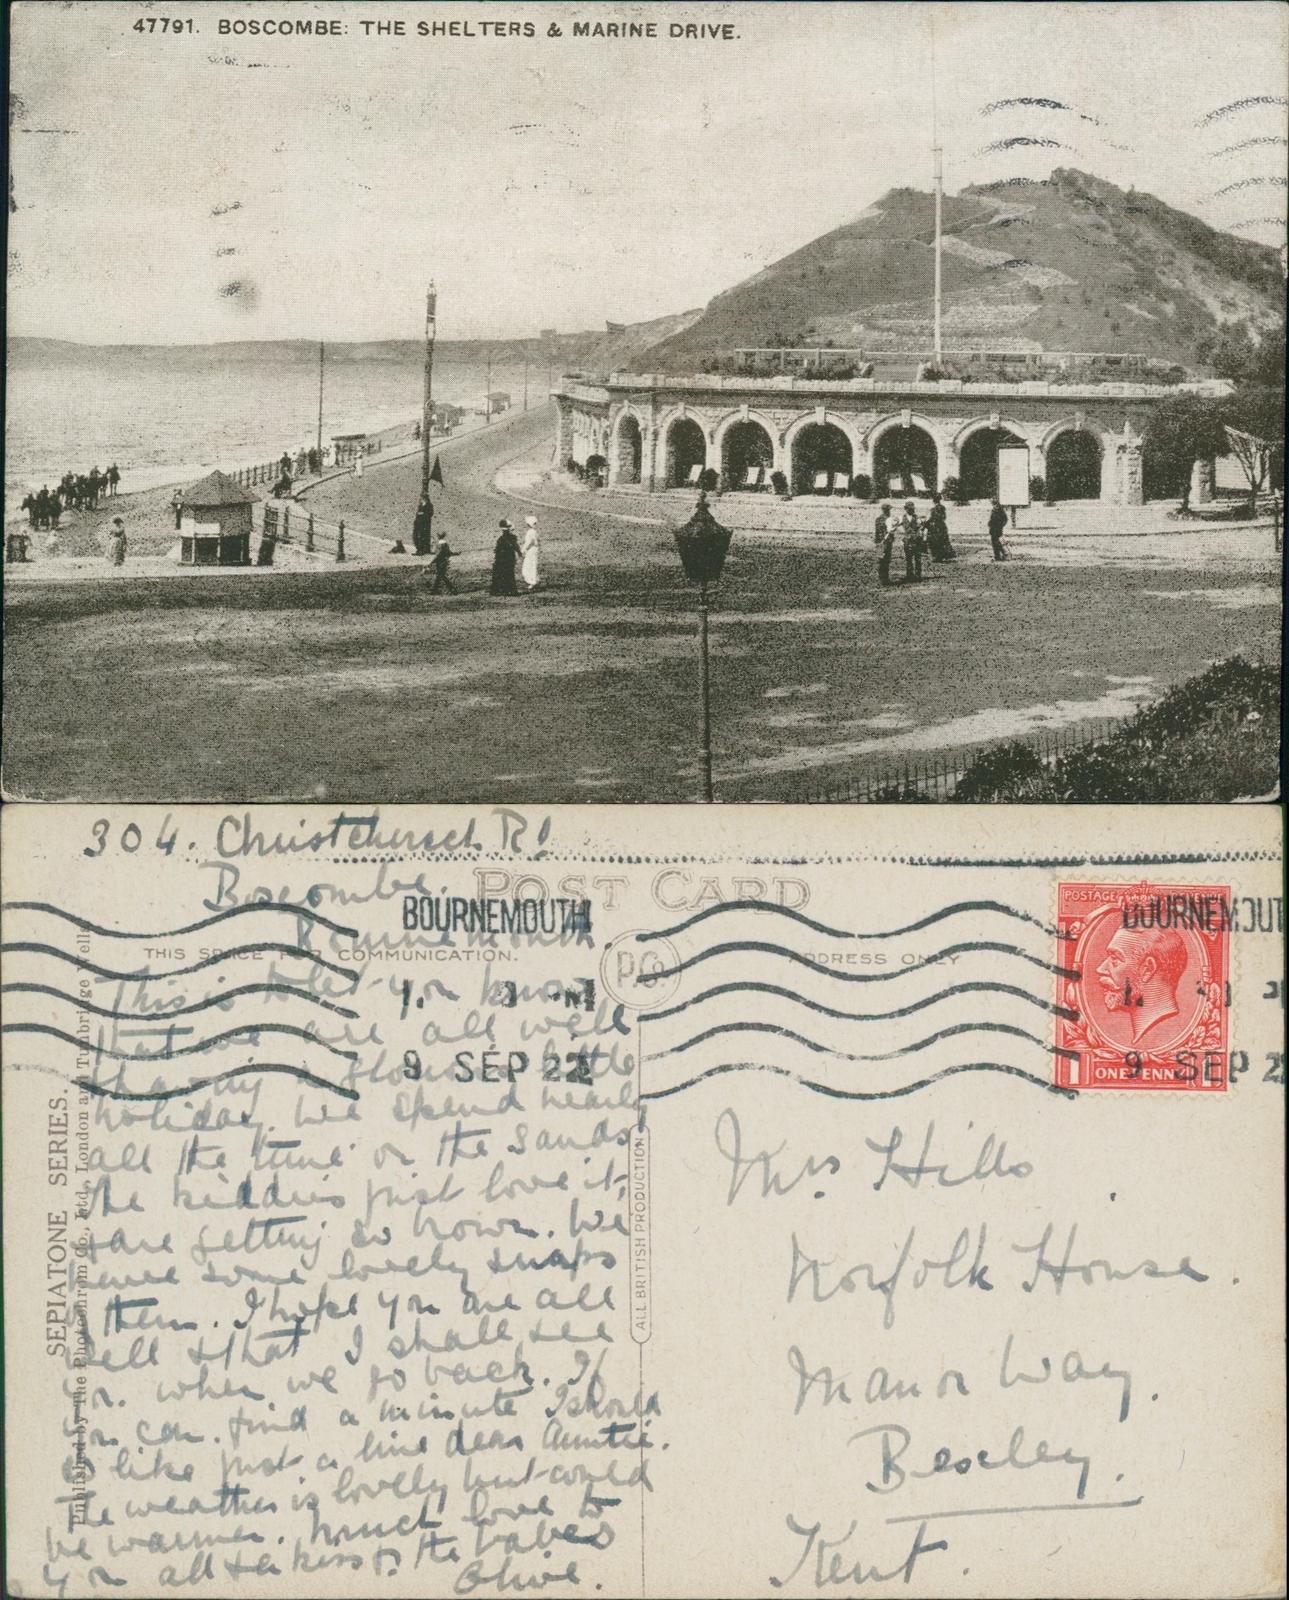 47791. BOSCOMBE: THE SHELTERS & MARINE DRIVE.
304. Christchurch Rd
Boscombe.
Bournemouth.
POST CARD
THIS SPACE FOR COMMUNICATION.
ADDRESS ONLY
P.Co.
BOURNEMOUTH
9 SEP 22
BOURNEMOUT
9 SEP 2
POSTAGE
1 ONE PENNY 1
This is to let you know
that we are all well
& having a glorious little
holiday. We spend nearly
all the time on the sands
The kiddies just love it,
& are getting so brown. We
have some lovely snaps
of them. I hope you are all
well & that I shall see
you when we go back. If
you can find a minute I should
so like just a line dear Auntie.
The weather is lovely but could
be warmer. Much love to
you all & a kiss to the babes
Olive.
SEPIATONE SERIES.
Published by The Photochrom Co., Ltd., London and Tunbridge Wells
ALL BRITISH PRODUCTION
Mrs Hills
Norfolk House.
Manor Way.
Bexley.
Kent.